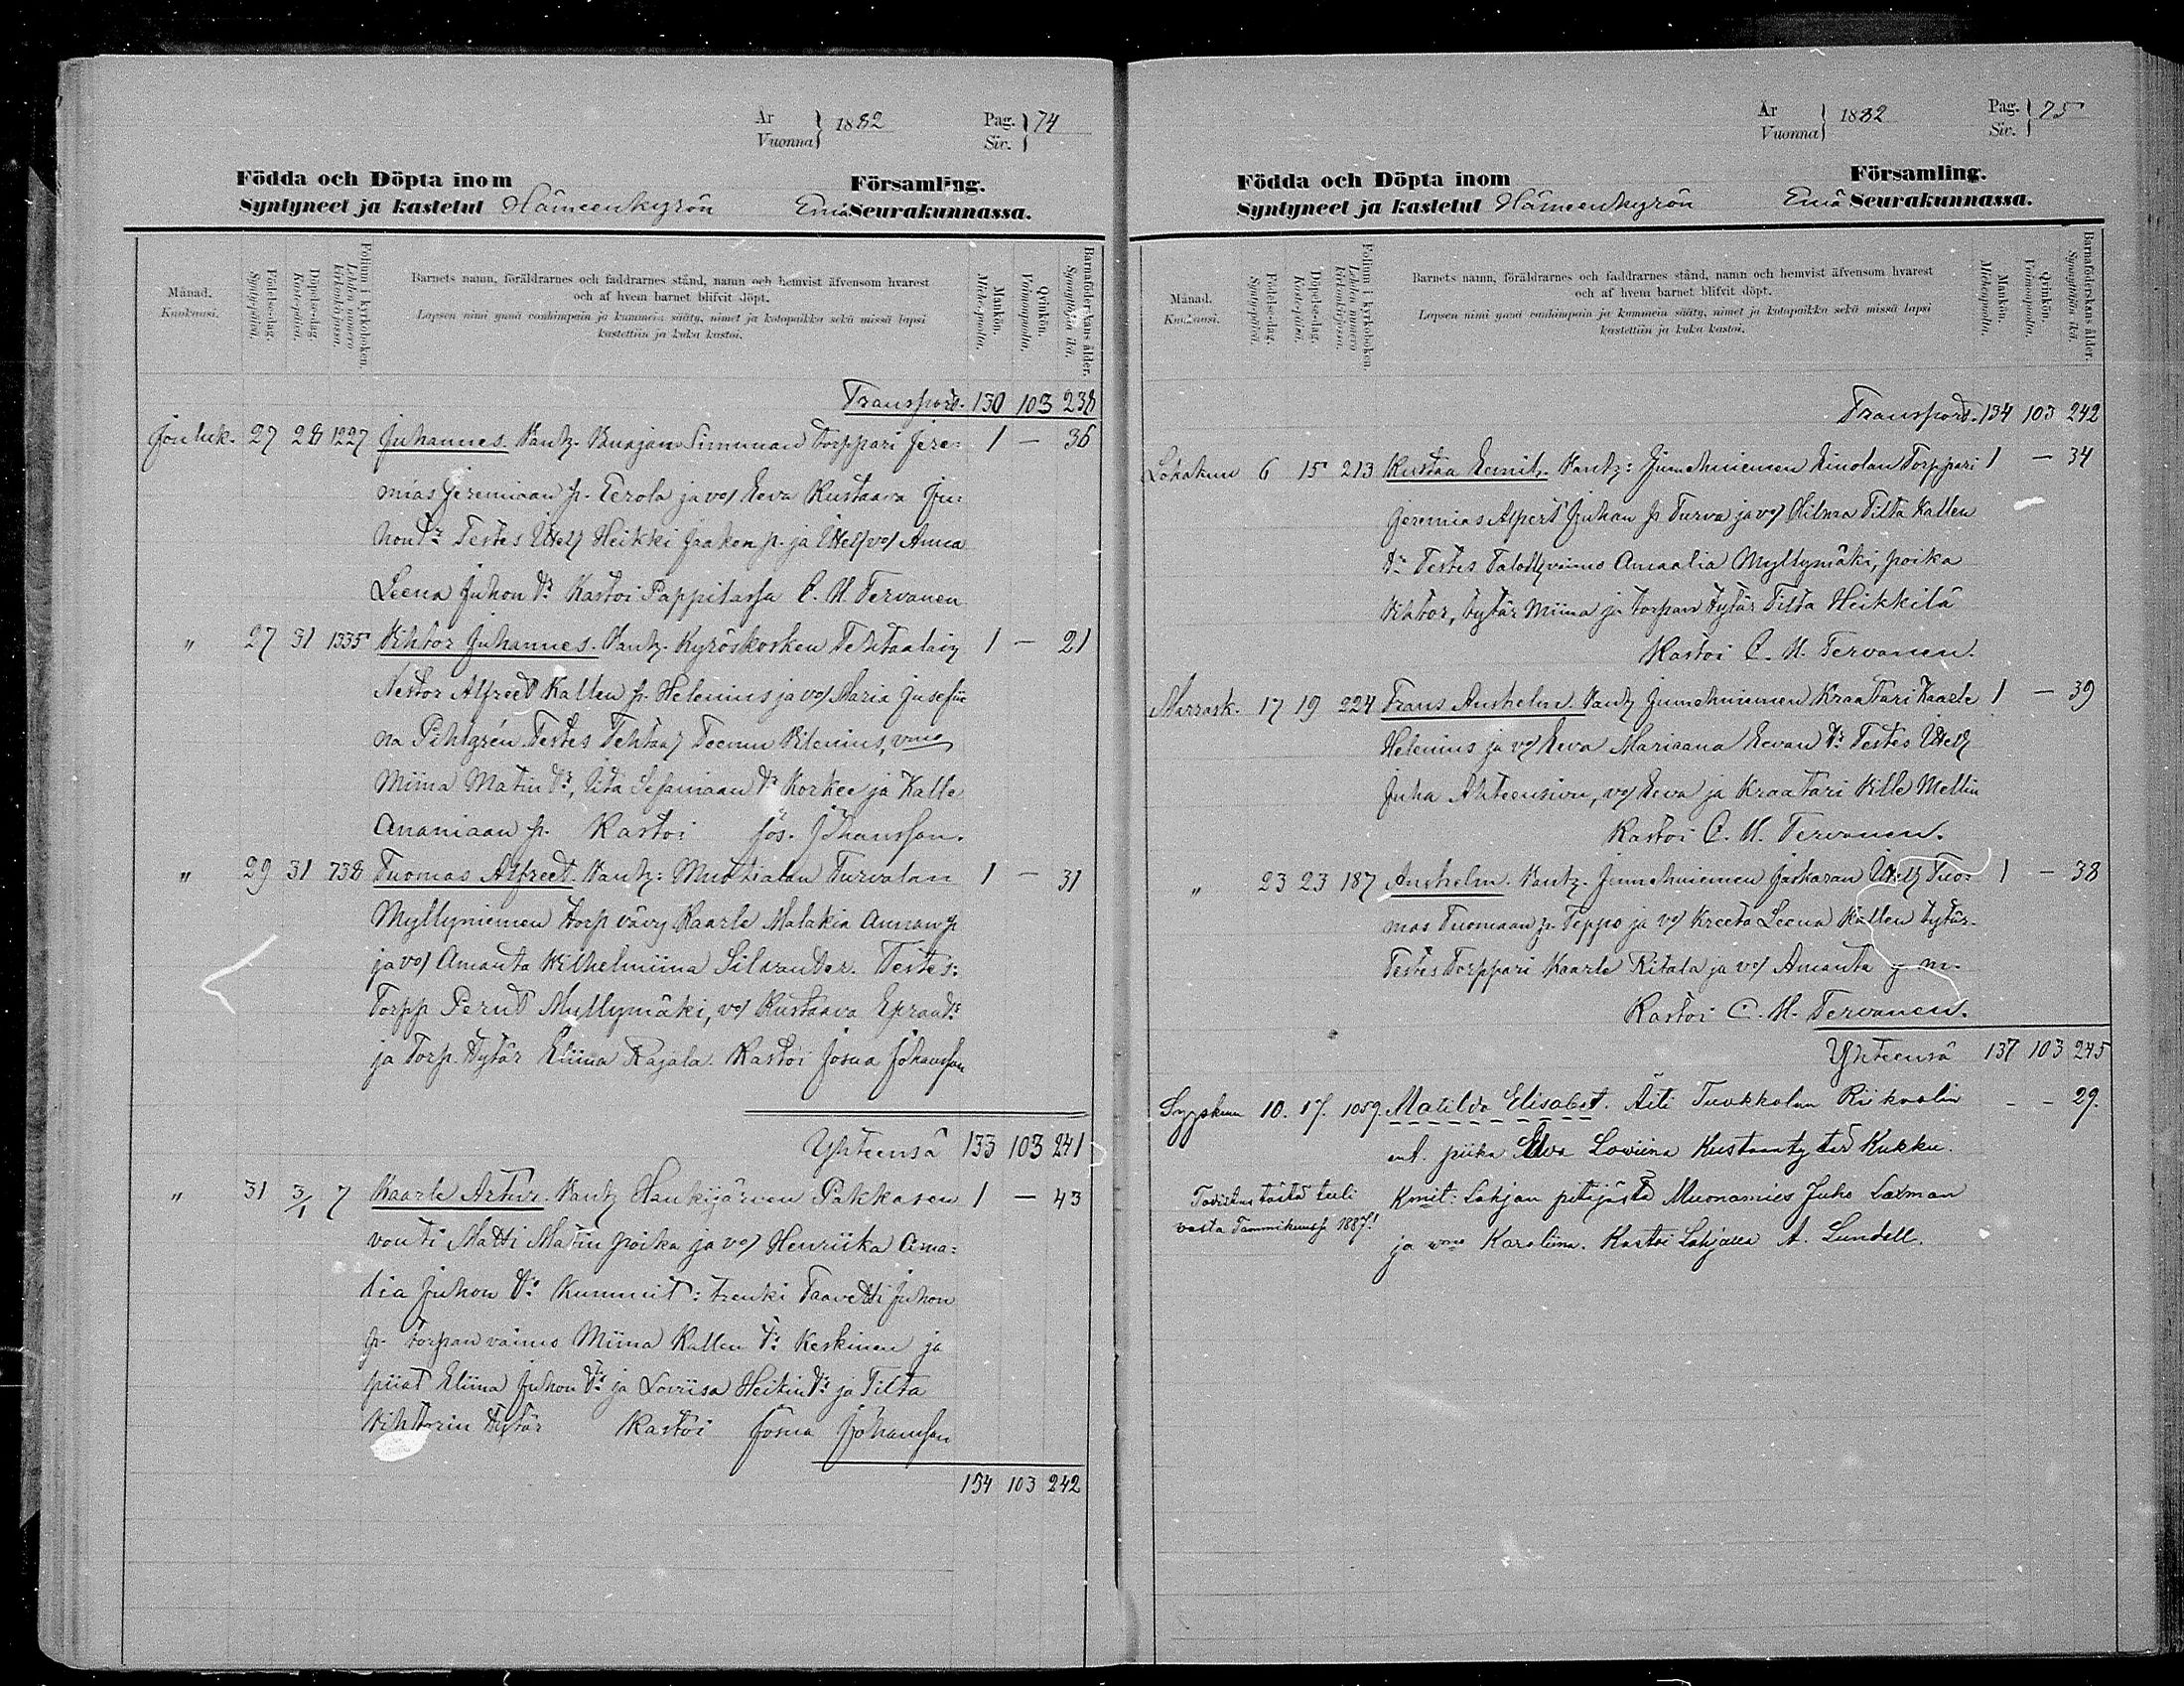 År
Vuonna } 1882
Pag.
Siv. } 74
Födda och Döpta inom Församling.
Syntyneet ja kastetut Hämeenkyrön Emä Seurakunnassa.
Månad.
Kuukausi.
Födelse-dag.
Syntypäivä.
Döpelse-dag.
Kastepäivä.
Folium i kyrkoboken.
Lehden numero kirkonkirjassa.
Barnets namn, föräldrarnes och faddrarnes stånd, namn och hemvist äfvensom hvarest
och af hvem barnet blifvit döpt.
Lapsen nimi ynnä vanhimpain ja kummein sääty, nimet ja kotopaikka sekä missä lapsi
kastettiin ja kuka kastoi.
Mankön.
Miehenpuolta.
Qvinkön.
Vaimonpuolta.
Barnaföderskans ålder.
Synnyttäjän ikä.
Transport. 130 103 238
Jouluk. 27 28 1227 Juhannes. Vanh. Simunan torppari Jere- 1 — 36
mias Jeremiaan p. Eerola ja vo/ Eeva Kustaava Ju-
hont:r Testes Itsell Heikki Jaakon p. ja Itsell vo/ Anna
Leena Juhon t:r Kastoi Pappilassa C. M. Tervanen
" 27 31 1335 Vihtor Juhannes. Vanh. Kyröskosken Tehtaalain 1 — 21
Nestor Alfred Kallen p. Helenius ja vo/ Maria Josefii-
na Pihlgrén. Testes Tehtaal Teemu Vilenius, vmo
Miina Matin t:r, Iita Sefaniaan t:r Korkee ja Kalle
Ananiaan p. Kastoi Jos. Johansson.
" 29 31 738 Tuomas Alfred. Vanh: Muotialan Turvalan 1 — 31
Myllyniemen torp vävy Kaarle Malakia Annan p
ja vo/ Amanta Vilhelmiina Silvander. Testes:
Torpp Pernt Myllymäki, vo/ Kustaava Eprat:r
ja Torp. tytär Eliina Rajala. Kastoi Josua Johansson
Yhteensä 133 103 241
" 31 3/1 7 Kaarle Artur. Vanh Haukijärven Pakkasen 1 — 43
vouti Matti Matin poika ja vo/ Henriika Ama-
lia Juhon t:r Kummit: trenki Taavetti Juhon
p. torpan vaimo Miina Kallen t:r Keskinen ja
piiat Eliina Juhon t:r ja Loviisa Heikin t:r ja Tilta
Vihtorin tytär Kastoi Josua Johansson
134 103 242
År
Vuonna } 1882
Pag.
Siv. } 75
Födda och Döpta inom Församling.
Syntyneet ja kastetut Hämeenkyrön Emä Seurakunnassa.
Månad.
Kuukausi.
Födelse-dag.
Syntypäivä.
Döpelse-dag.
Kastepäivä.
Folium i kyrkoboken.
Lehden numero kirkonkirjassa.
Barnets namn, föräldrarnes och faddrarnes stånd, namn och hemvist äfvensom hvarest
och af hvem barnet blifvit döpt.
Lapsen nimi ynnä vanhimpain ja kummein sääty, nimet ja kotopaikka sekä missä lapsi
kastettiin ja kuka kastoi.
Mankön.
Miehenpuolta.
Qvinkön.
Vaimonpuolta.
Barnaföderskans ålder.
Synnyttäjän ikä.
Transport. 134 103 242
Lokakuu 6 15 213 Kustaa Eemil. Vanh: Jumehniemen Einolan Torppari 1 — 34
Jeremias Juhan p Turva ja vo/ Hilma Tilta Kallen
t:r Testes vaimo Amaalia Myllymäki, poika
Vihtor, tytär Miina ja torpan tytär Tilta Heikkilä
Kastoi C. M. Tervanen.
Marrask. 17 19 224 Frans Anshelm. Vanh Jumehniemen Kraatari Kaarle 1 — 39
Helenius ja vo/ Eeva Mariaana Eevan t:r Testes Itsell
Juha Ahteensivu, vo/ Eeva ja Kraatari Ville Mellin
Kastoi C. M. Tervanen.
" 23 23 187 Anshelm. Vanh. Jumehniemen Jaskaran Itsell Tuo- 1 — 38
mas Tuomaan p. Teppo ja vo/ Kreeta Leena Kallen tytär.
Testes Torppari Kaarle Ritala ja vo/ Amanta y m.
Kastoi C. M. Tervanen.
Yhteensä 137 103 245
Syyskuu 10. 17. 1059. Matilda Elisabet. Äiti Tuokkolan Rikoolin — — 29.
ent. piika Eva Loviina Kustaantytär Kukku.
Todistus tästä tuli Kmit: Lohjan pitäjästä Muonamies Juho Laxman
vasta Tammikuussa 1887! ja vmo Karoliina. Kastoi Lohjalla A. Lundell.